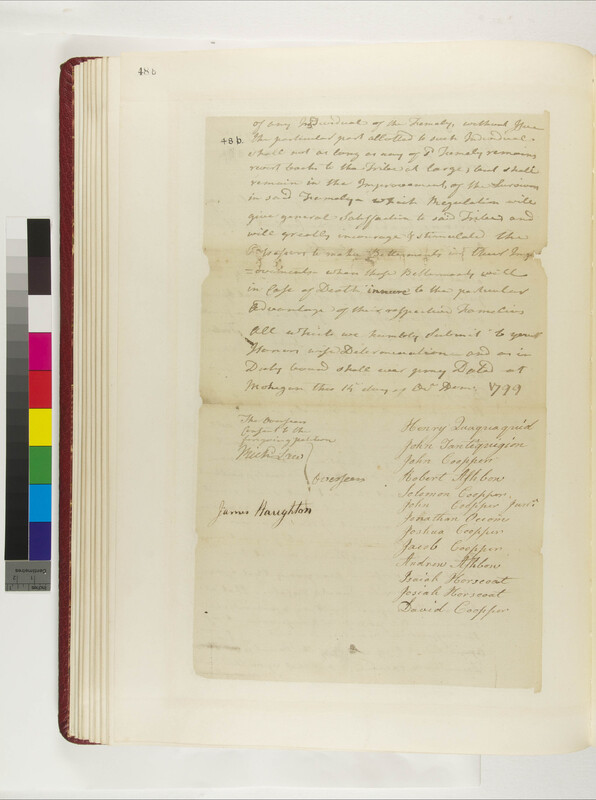 48b
48b.
of any Individual of the Famely, without Issue
the particular part allotted to such Individual
shall not as long as any of sd Famely remains
revert back to the Tribe at large, but shall
remain in the Improvement of the Survivors
in said Famely which Regulation will
give general Satisfaction to said Tribe and
will greatly encourage & stimulate the
Possessors to make Betterments in their
when those Betterments will
in Case of Death to the perticular
Advantage of the respective Famelies
All which we humbly submit to your
Honours wise Determination and as in
Duty bound shall ever pray Dated at
Mohegan this day of 1799
The Overseers
Consent to the
foregoing petition
Overseers
James Haughton
Henry Quaquaquid
John Tantiquigion
John Coopper
Robert Ashbow
Solomon Coopper
John Coopper Junr
Jonathan Occom
Joshua Coopper
Jacob Coopper
Andrew Ashbow
Isaiah Horscoat
Josiah Horscoat
David Coopper